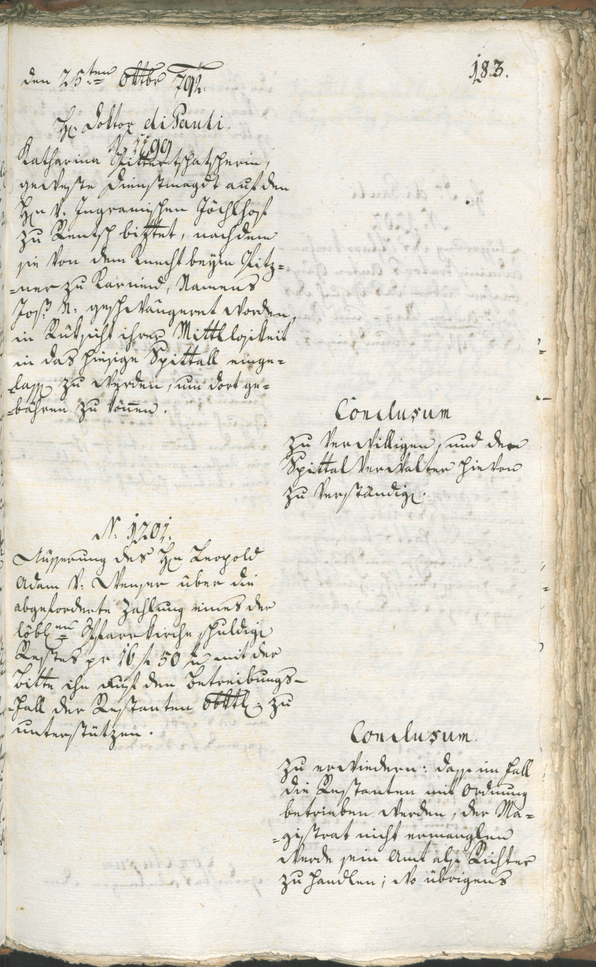 den 25ten 8ttbr 792.
183.
H: Doktor di Pauli.
N. 1199
Katharina
geweste Dienstmagdt auf den
Hn v. Ingramischen Jöchlhof
zu Rentsch bittet, nachdem
sie von dem Knecht beym Pitz-
ner zu Karneid, Namens
Jos: N. geschwängeret worden,
in Rüksicht ihrer Mittllosikeit
in das hiesige Spittall einge-
lass zu werden, um dort ge-
bähren zu können.
Conclusum
zu verwilligen, und der
Spittal Verwalter hievon
zu verständig.
N. 1201.
Äusserung des Hn Leopold
Adam v. Wenser über die
abgeforderte Zahlung eines der
löbl. Pfarrkirche schuldig
Restes pr 16 f 50 x mit der
Bitte ihn auf den Betreibungs-
fall der Restanten obktl. zu
unterstützen.
Conclusum.
zu erwiedern: dass im fall
die Restanten mit Ordnung
betrieben werden, der Ma-
gistrat nicht ermanglen
werde sein Amt als Richter
zu handlen; wo übrigens